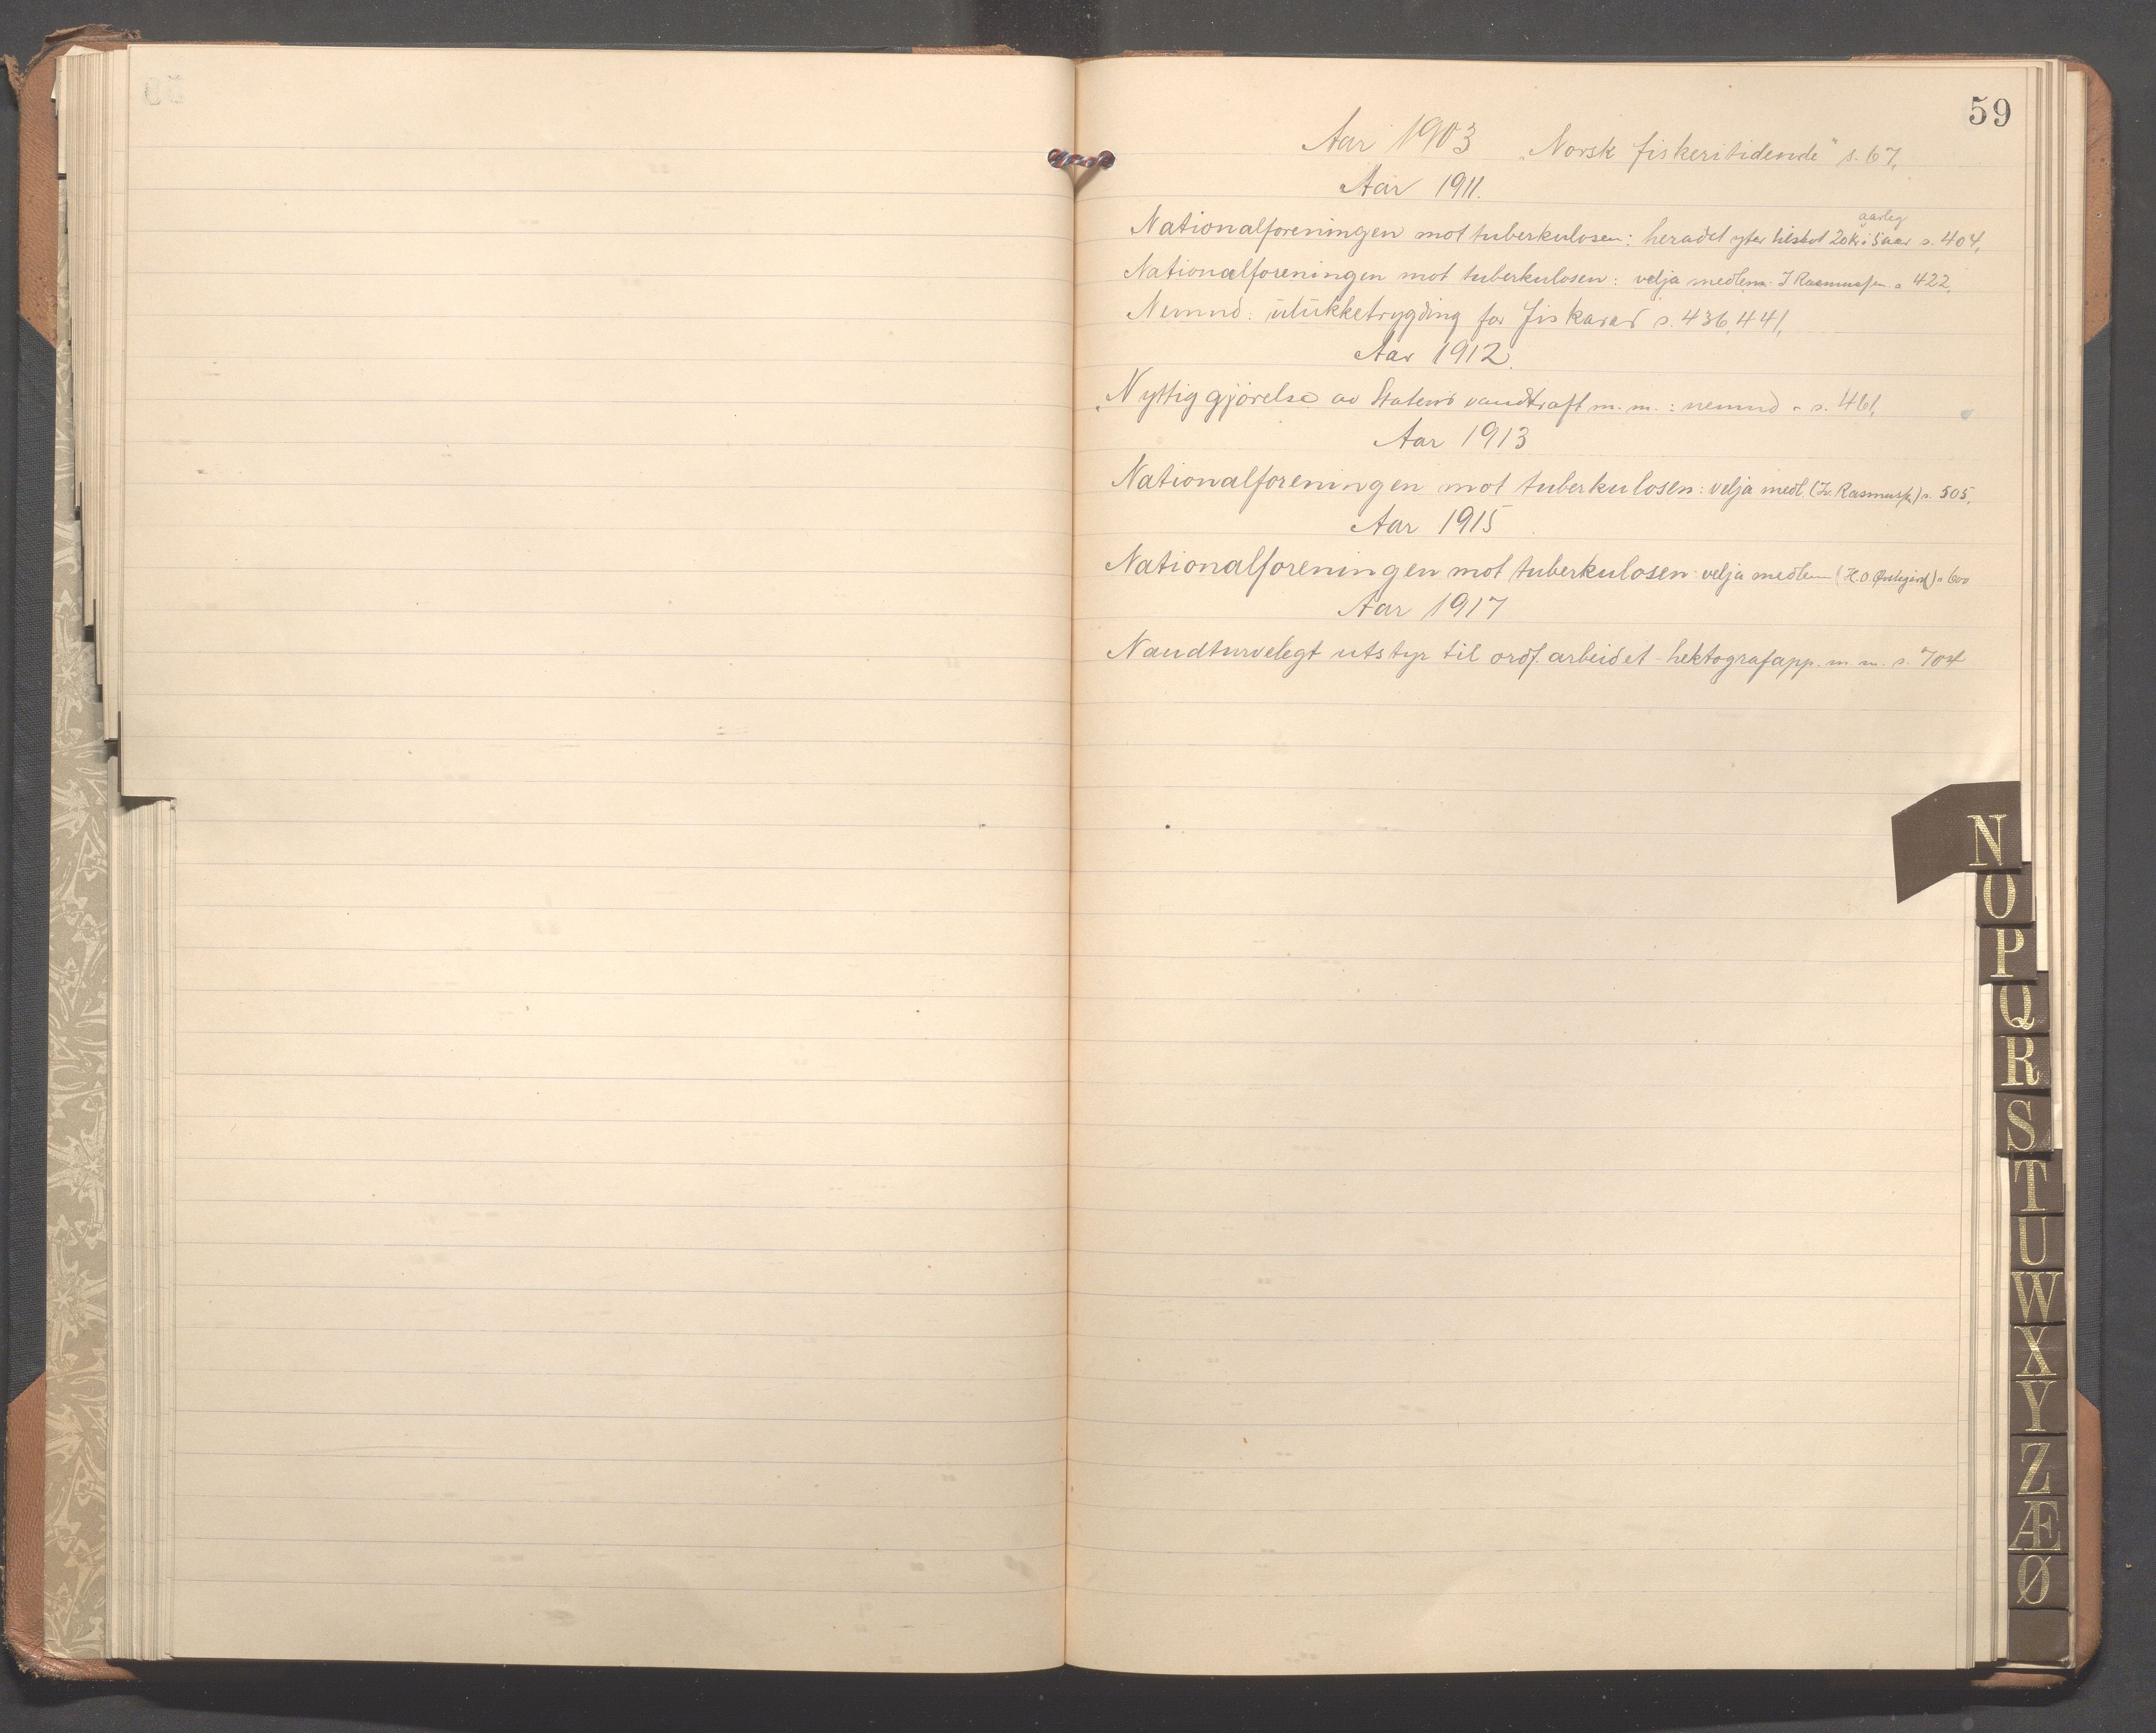 59
Aar 1903 „Norsk fiskeritidende" s. 67,
Aar 1911.
Nationalforeningen mot tuberkulosen: heradet yter tilskot 20 kr aarleg i 5 aar s. 404,
Nationalforeningen mot tuberkulosen: velja medlem - I Rasmussen s 422,
Nemnd: ulukketrygding for fiskarar s. 436, 441,
Aar 1912.
„Nyttiggjörelse av Statens vandkraft m. m.: nemnd - s. 461,
Aar 1913
Nationalforeningen mot tuberkulosen: velja medl. (Rasmuss) s. 505,
Aar 1915
Nationalforeningen mot tuberkulosen: velja medlem (H.O.) s 600
Aar 1917
Naudturvelegt utstyr til ordf. arbeidet - hektografapp. m. m. s. 704
N
O
P
Q
R
S
T
U
W
X
Y
Z
Æ
Ø